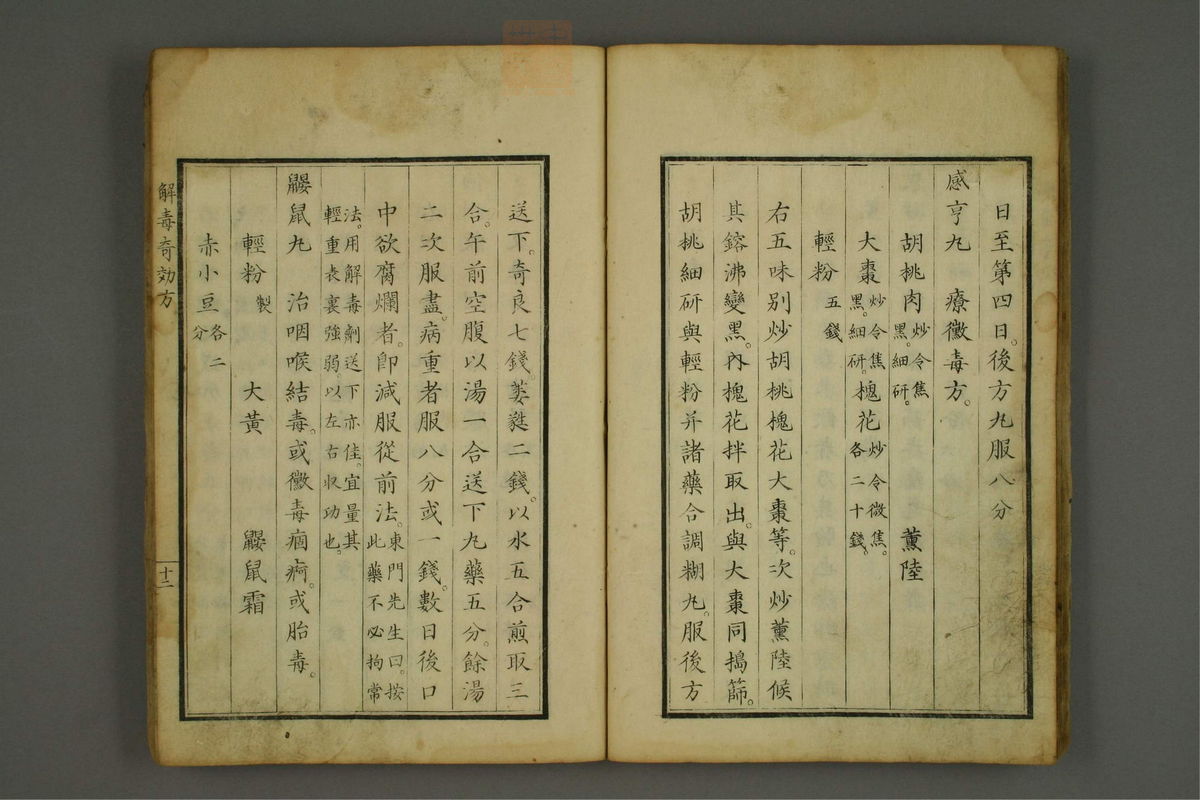 日至第四日。後方丸服八分
感亨丸 療黴毒方。
胡桃肉炒令焦黑。細研。 薰陸
大棗炒令焦黑。細研。槐花炒令微焦。各二十錢。
輕粉五錢
右五味別炒胡桃槐花大棗等。次炒薰陸候
其鎔沸變黑。內槐花拌取出。與大棗同搗篩。
胡桃細研與輕粉并諸藥合調糊丸。服後方
送下。奇良七錢。萎蕤二錢。以水五合煎取三
合。午前空腹以湯一合送下丸藥五分。餘湯
二次服盡。病重者服八分或一錢。數日後口
中欲腐爛者。卽減服從前法。東門先生曰。按此藥不必拘常
法。用解毒劑送下亦佳。宜量其輕重表裏強弱。以左右収功也。
鼴鼠丸 治咽喉結毒。或黴毒痼痾。或胎毒。
輕粉製 大黃 鼴鼠霜
赤小豆各二分
解毒奇効方
十二